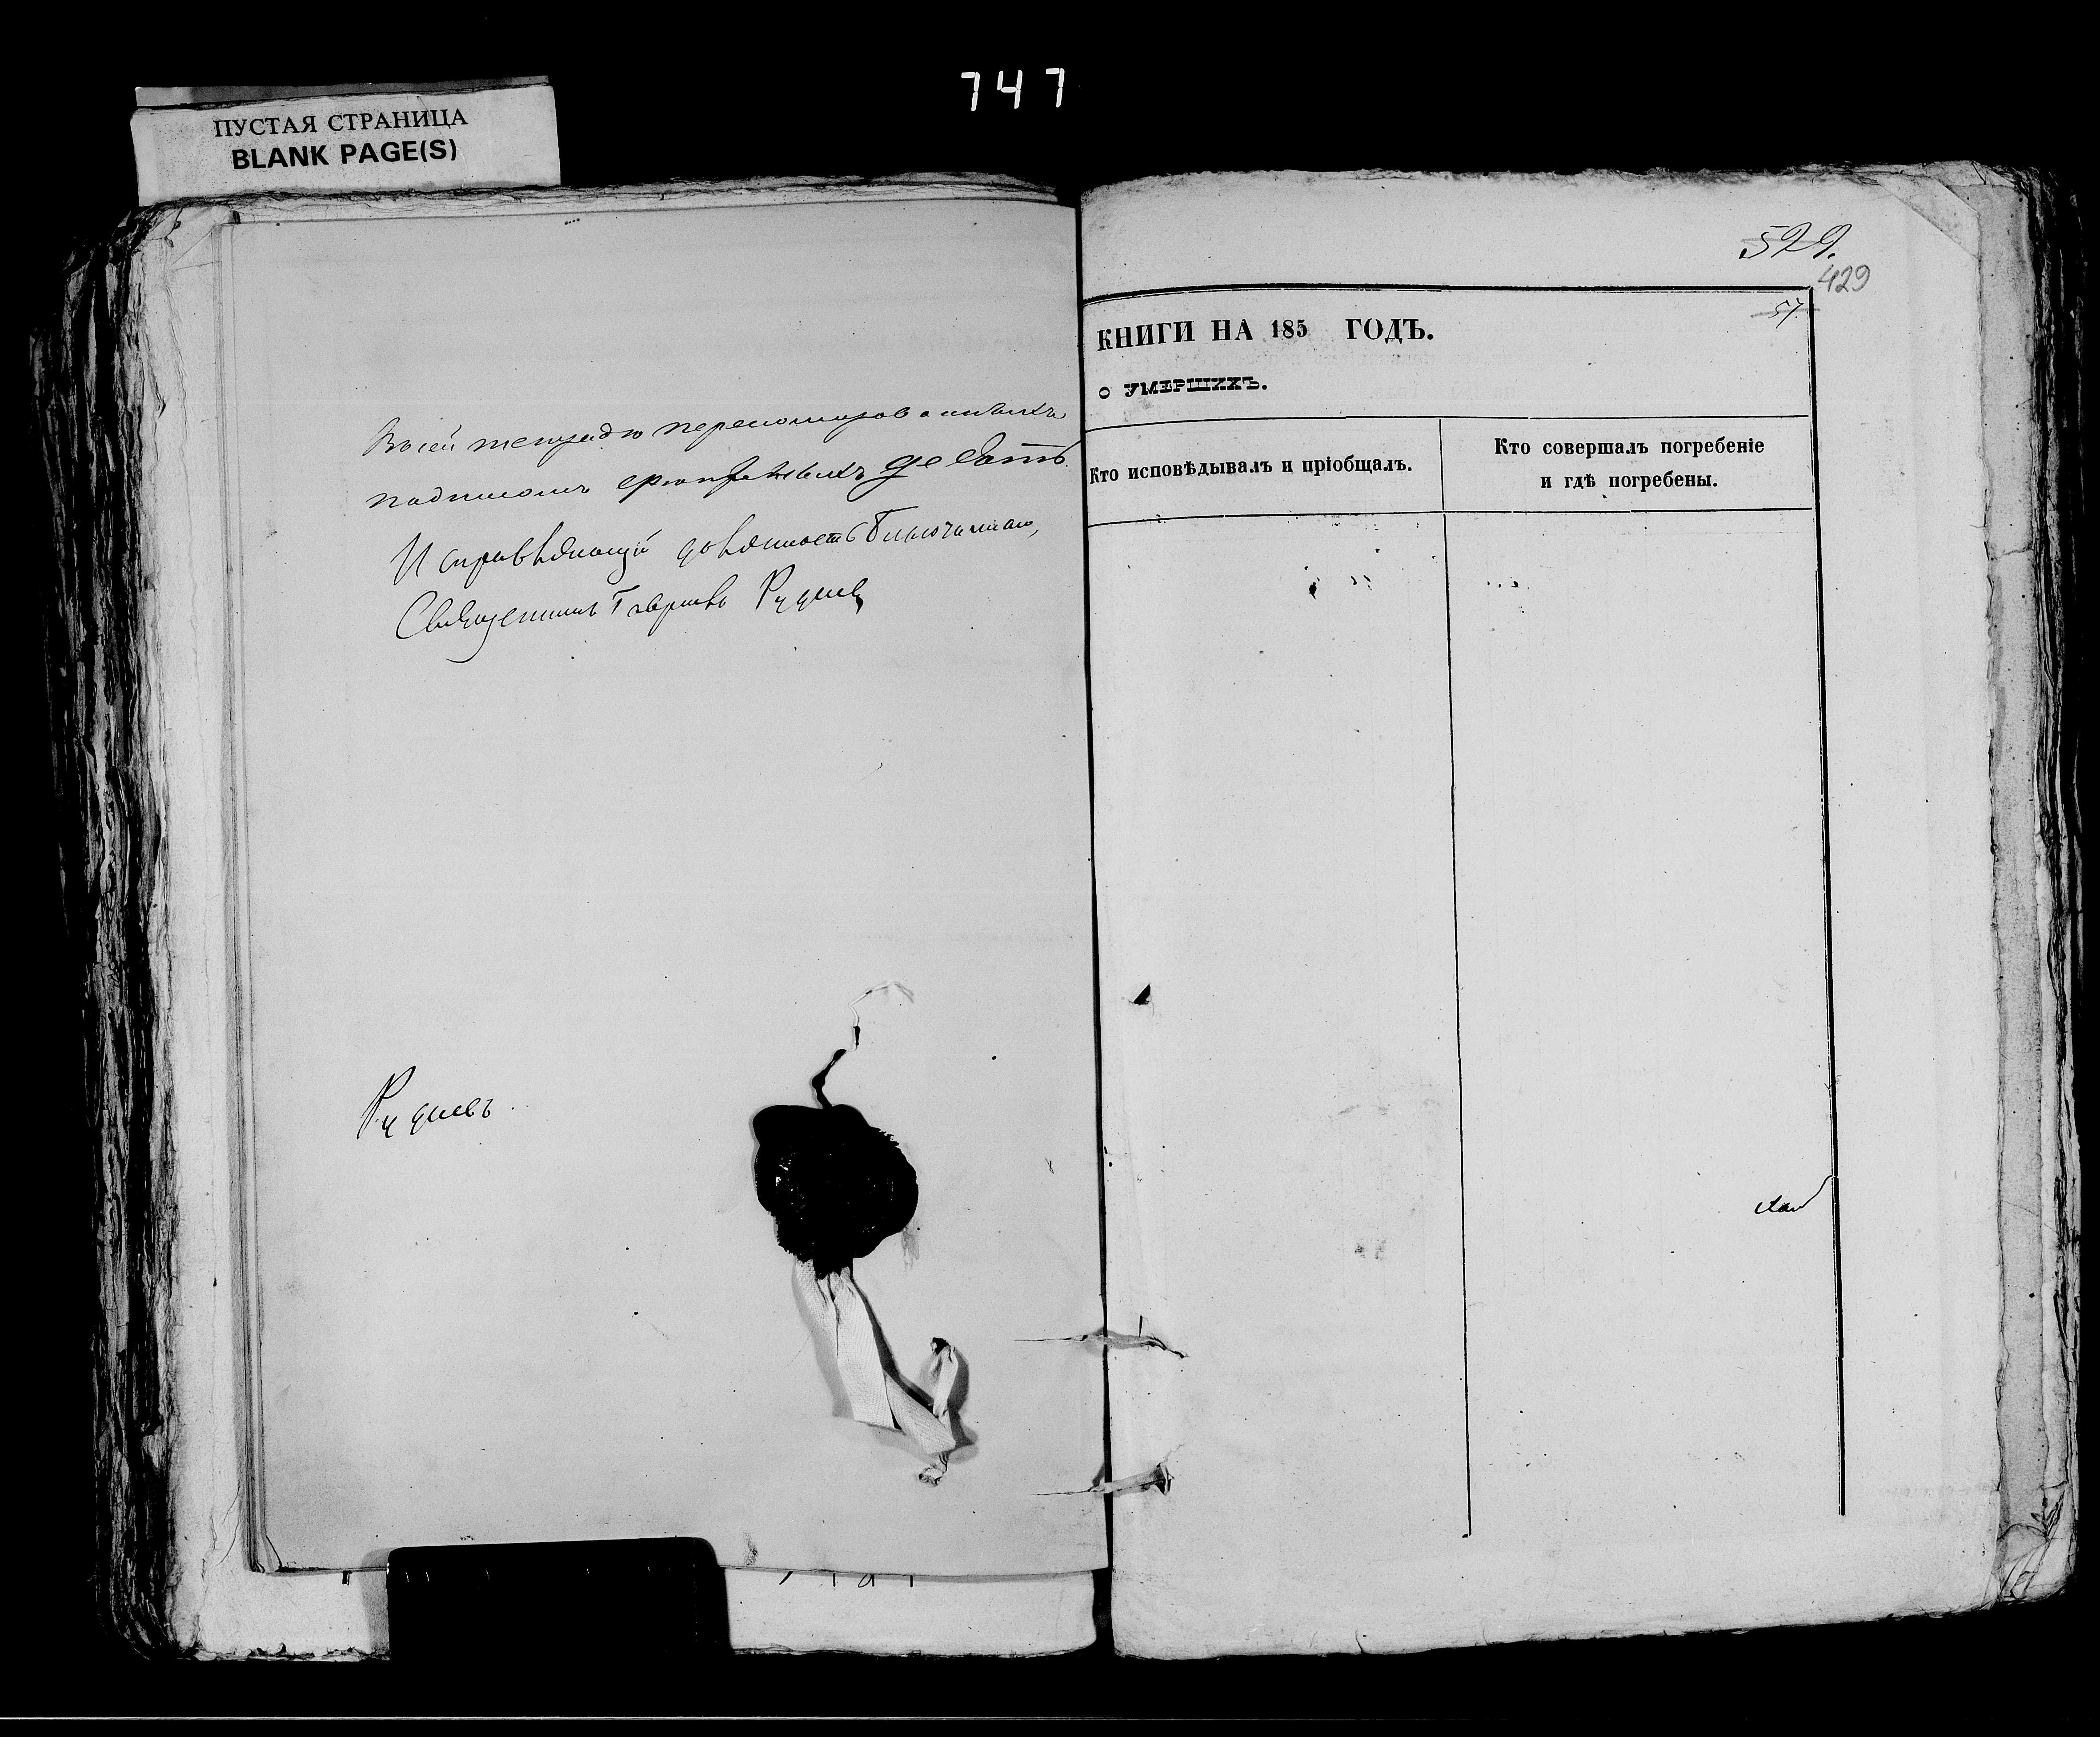 747
ПУСТАЯ СТРАНИЦА
BLANK PAGE(S)
Въ сей тетради переномерованныхъ
подписомъ девять
Исправляющій должность Благочиннаго,
Священникъ Гавріилъ Рудневъ
Рудневъ
529.
429
57
КНИГИ НА 185 ГОДЪ.
о УМЕРШИХЪ.
Кто исповѣдывалъ и пріобщалъ.
Кто совершалъ погребеніе
и гдѣ погребены.